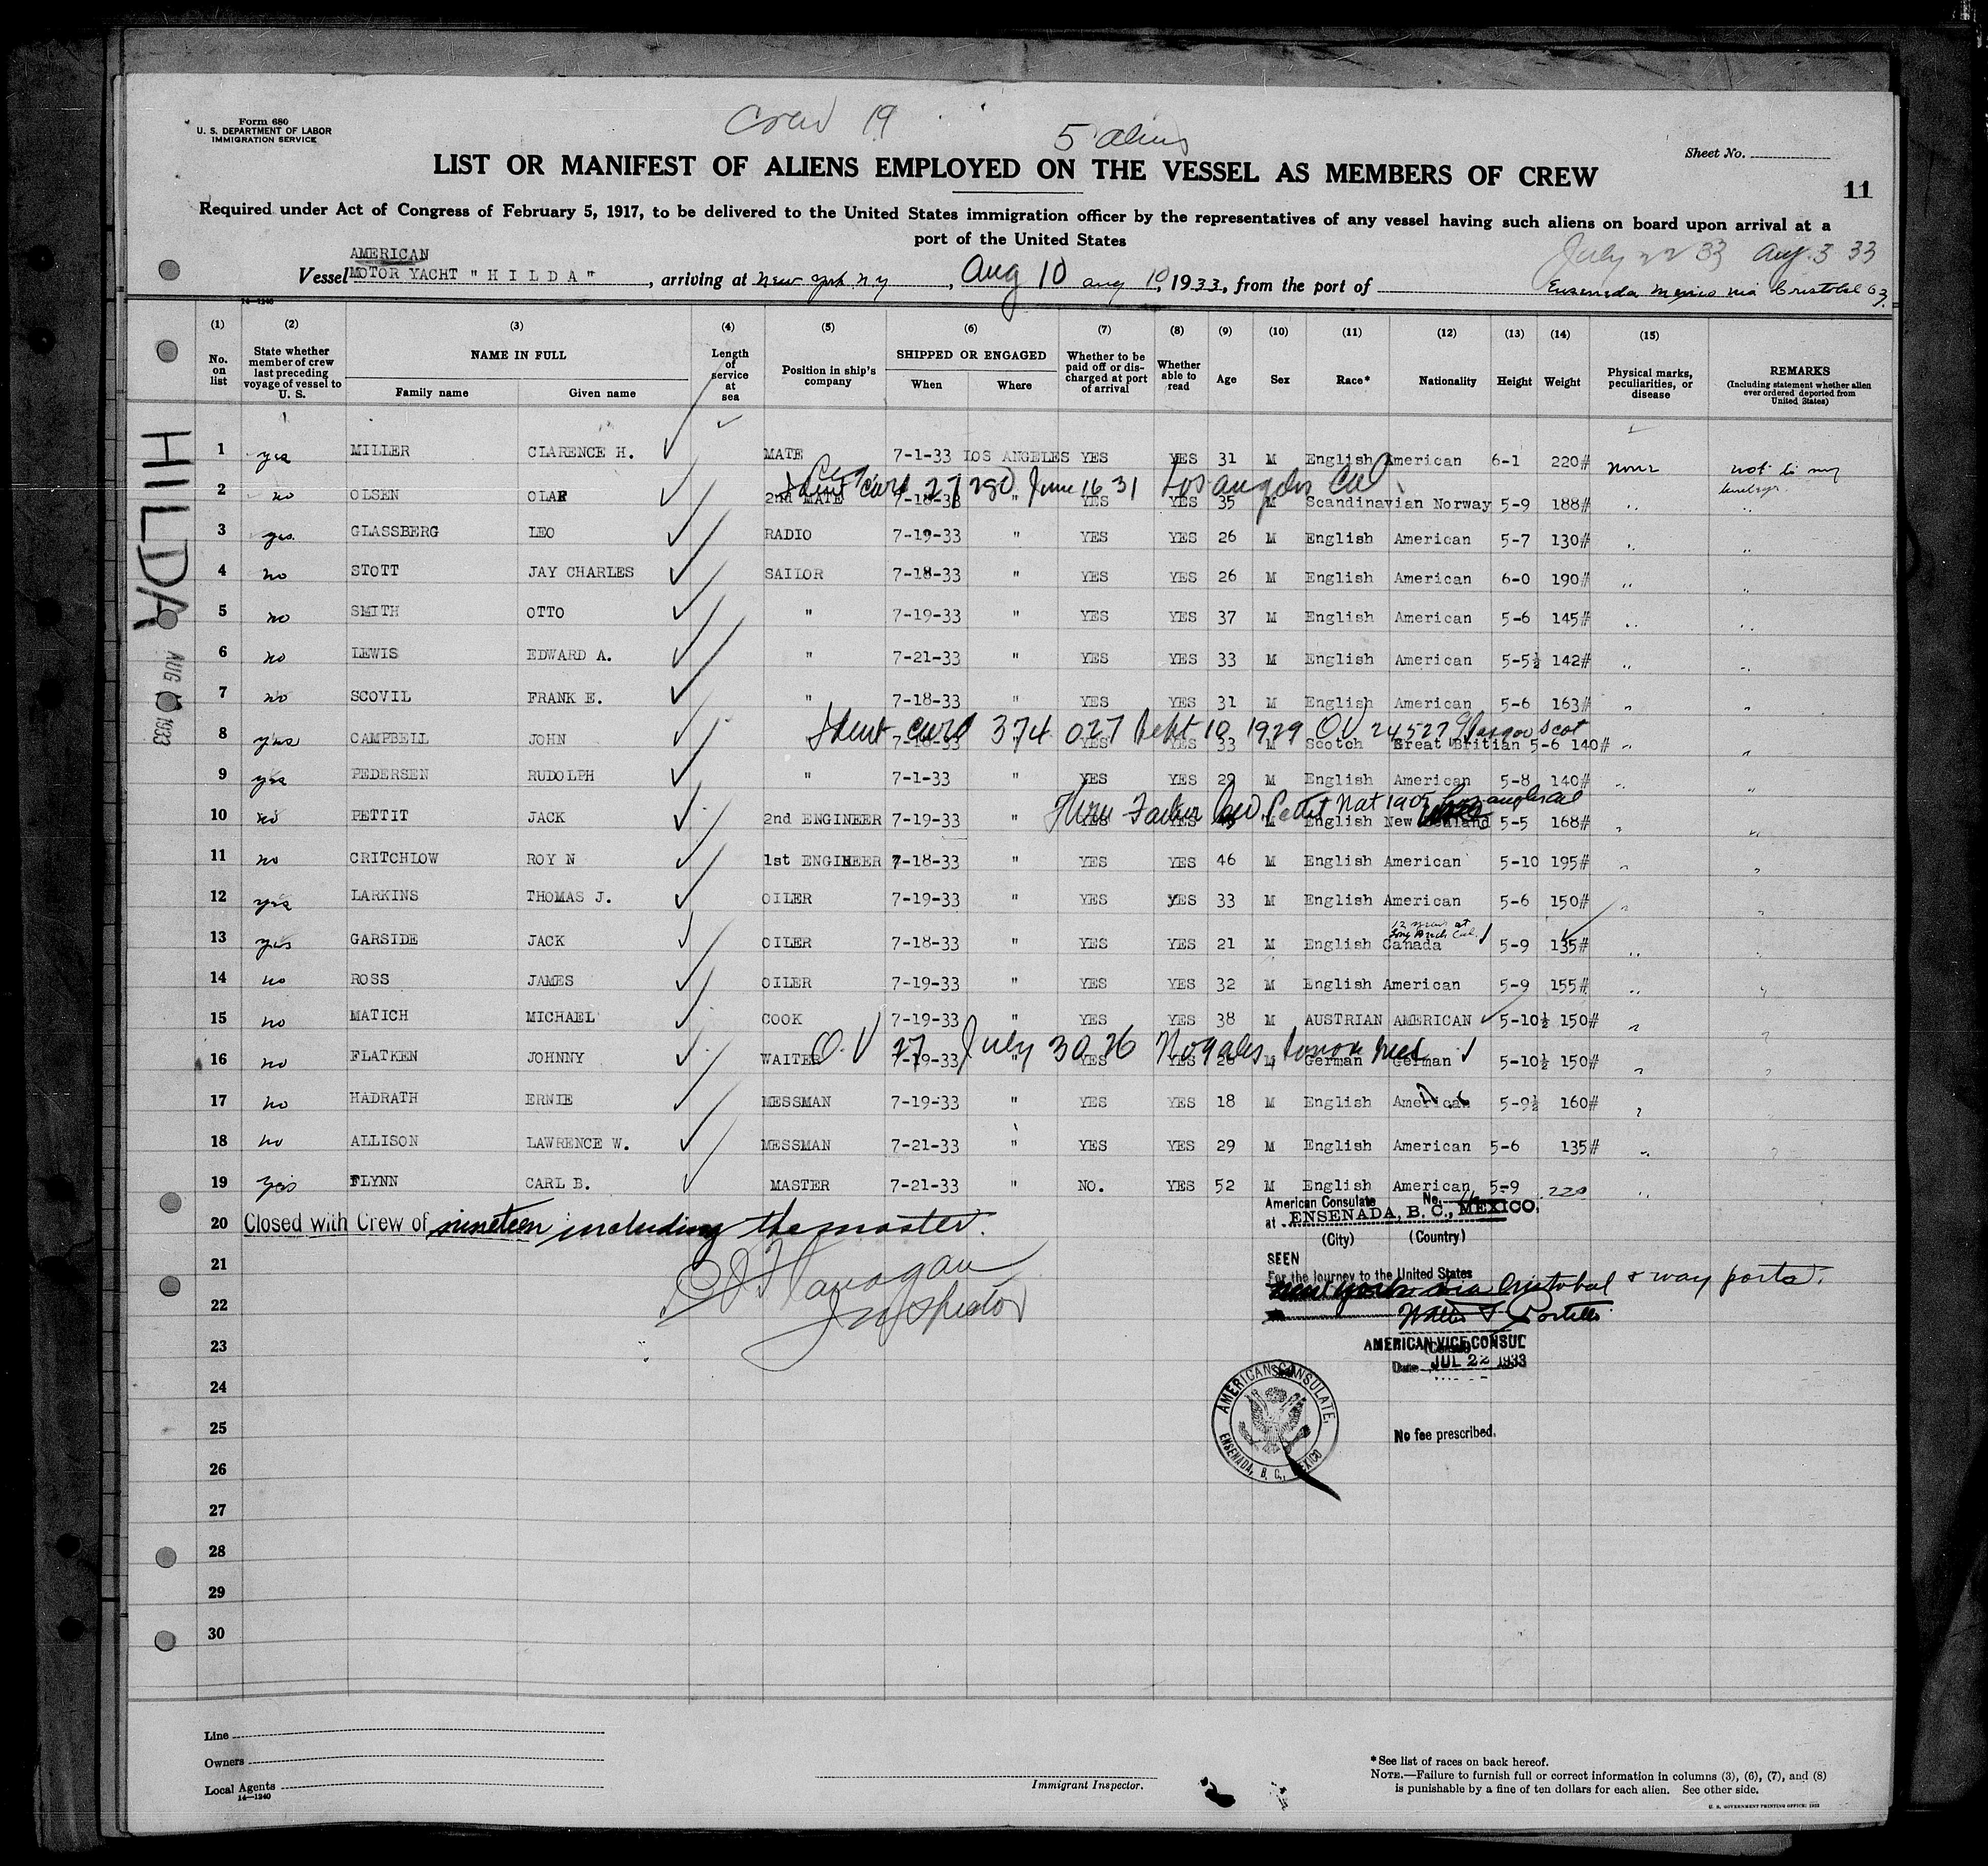 Crew 19
5 aliens
Form 680
U. S. DEPARTMENT OF LABOR
IMMIGRATION SERVICE
Sheet No.
LIST OR MANIFEST OF ALIENS EMPLOYED ON THE VESSEL AS MEMBERS OF CREW
11
Required under Act of Congress of February 5, 1917, to be delivered to the United States immigration officer by the representatives of any vessel having such aliens on board upon arrival at a
port of the United States
July 22 33 Aug. 3 33
AMERICAN
Vessel MOTOR YACHT "H I L D A", arriving at New York NY, Aug 10 aug 10, 1933, from the port of Ensenada Mexico via Cristobal C3.
14-1240
(1) (2) (3) (4) (5) (6) (7) (8) (9) (10) (11) (12) (13) (14) (15)
No. on list
State whether member of crew last preceding voyage of vessel to U. S.
NAME IN FULL
Family name Given name
Length of service at sea
Position in ship's company
SHIPPED OR ENGAGED
When Where
Whether to be paid off or discharged at port of arrival
Whether able to read
Age Sex Race* Nationality Height Weight
Physical marks, peculiarities, or disease
REMARKS
(Including statement whether alien ever ordered deported from United States)
HILDA
AUG 10 1933
1 yes MILLER CLARENCE H. MATE 7-1-33 LOS ANGELES YES YES 31 M English American 6-1 220# none not to my knowledge
Ident card 27280 June 16 31 Los angeles Cal
2 no OLSEN OLAF 2nd MATE 7-18-33 " YES YES 35 M Scandinavian Norway 5-9 188# " "
3 yes GLASSBERG LEO RADIO 7-19-33 " YES YES 26 M English American 5-7 130# " "
4 no STOTT JAY CHARLES SAILOR 7-18-33 " YES YES 26 M English American 6-0 190# " "
5 no SMITH OTTO " 7-19-33 " YES YES 37 M English American 5-6 145# " "
6 no LEWIS EDWARD A. " 7-21-33 " YES YES 33 M English American 5-5½ 142# " "
7 no SCOVIL FRANK E. " 7-18-33 " YES YES 31 M English American 5-6 163# " "
Ident card 374 027 Sept 10 1929 OV 24527 Glasgow Scot
8 yes CAMPBELL JOHN YES YES 33 M Scotch Great Britian 5-6 140# " "
9 yes PEDERSEN RUDOLPH " 7-1-33 " YES YES 29 M English American 5-8 140# " "
Thru Father Geo Pettit Nat 1905 Los angles Cal
10 no PETTIT JACK 2nd ENGINEER 7-19-33 " YES YES M English New Zealand 5-5 168# " "
11 no CRITCHLOW ROY N 1st ENGINEER 7-18-33 " YES YES 46 M English American 5-10 195# " "
12 yes LARKINS THOMAS J. OILER 7-19-33 " YES YES 33 M English American 5-6 150# " "
12 years at Long Beach Cal
13 yes GARSIDE JACK OILER 7-18-33 " YES YES 21 M English Canada 5-9 135# " "
14 no ROSS JAMES OILER 7-19-33 " YES YES 32 M English American 5-9 155# " "
15 no MATICH MICHAEL COOK 7-19-33 " YES YES 38 M AUSTRIAN AMERICAN 5-10½ 150# " "
O. V 27 July 30 26 Nogales, Sonora Mex
16 no FLATKEN JOHNNY WAITER 7-19-33 YES YES 26 M German German 5-10½ 150# " "
17 no HADRATH ERNIE MESSMAN 7-19-33 " YES YES 18 M English American 5-9½ 160# "
18 no ALLISON LAWRENCE W. MESSMAN 7-21-33 " YES YES 29 M English American 5-6 135# " "
19 yes FLYNN CARL B. MASTER 7-21-33 " NO. YES 52 M English American 5-9 220 "
20 Closed with Crew of nineteen including the master.
21 Flanagan
22 Inspector
23
24
25
26
27
28
29
30
American Consulate No.
at ENSENADA, B. C., MEXICO.
(City) (Country)
SEEN
For the journey to the United States
New York via Cristobal & way ports.
AMERICAN VICE CONSUL
Date JUL 22 1933
AMERICAN CONSULATE, ENSENADA, B. C., MEXICO
No fee prescribed.
Line
Owners
Local Agents
14-1240
Immigrant Inspector.
*See list of races on back hereof.
NOTE.—Failure to furnish full or correct information in columns (3), (6), (7), and (8)
is punishable by a fine of ten dollars for each alien. See other side.
U. S. GOVERNMENT PRINTING OFFICE: 1932